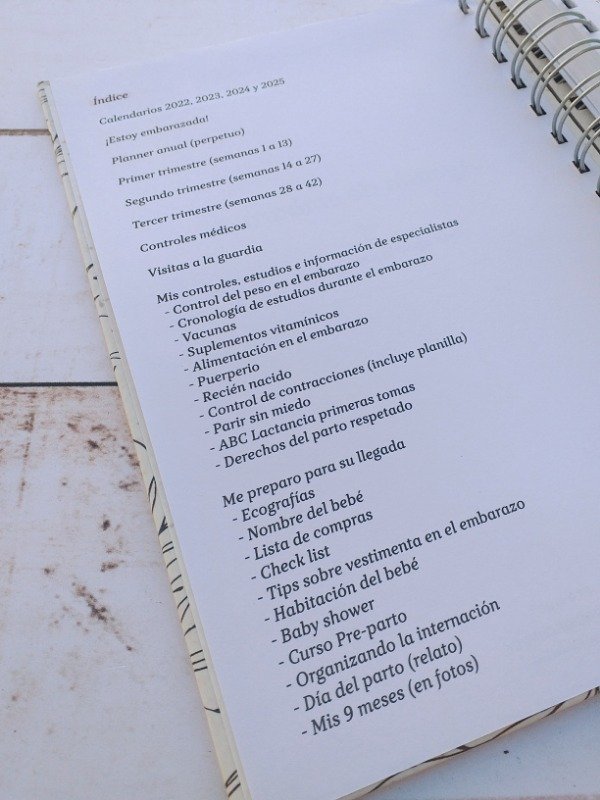 Índice
Calendarios 2022, 2023, 2024 y 2025
¡Estoy embarazada!
Planner anual (perpetuo)
Primer trimestre (semanas 1 a 13)
Segundo trimestre (semanas 14 a 27)
Tercer trimestre (semanas 28 a 42)
Controles médicos
Visitas a la guardia
Mis controles, estudios e información de especialistas
- Control del peso en el embarazo
- Cronología de estudios durante el embarazo
- Vacunas
- Suplementos vitamínicos
- Alimentación en el embarazo
- Puerperio
- Recién nacido
- Control de contracciones (incluye planilla)
- Parir sin miedo
- ABC Lactancia primeras tomas
- Derechos del parto respetado
Me preparo para su llegada
- Ecografías
- Nombre del bebé
- Lista de compras
- Check list
- Tips sobre vestimenta en el embarazo
- Habitación del bebé
- Baby shower
- Curso Pre-parto
- Organizando la internación
- Día del parto (relato)
- Mis 9 meses (en fotos)